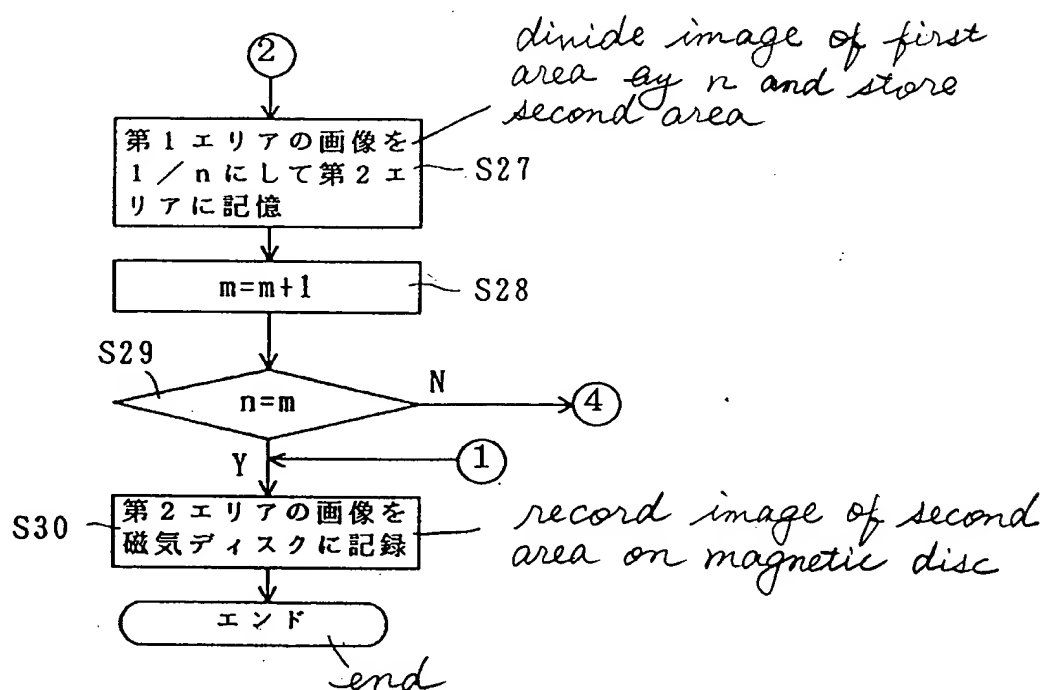 ②
divide image of first
area by n and store
second area
第1エリアの画像を
1／nにして第2エ
リアに記憶
S27
m=m+1
S28
S29
n=m
N
④
①
Y
S30
第2エリアの画像を
磁気ディスクに記録
record image of second
area on magnetic disc
エンド
end